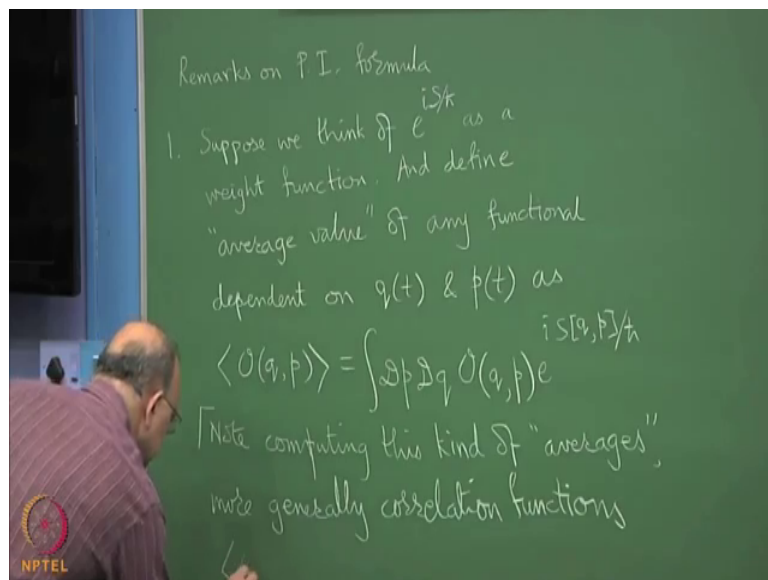 Remarks on P.I. formula
1. Suppose we think of e^{iS/ħ} as a
weight function. And define
"average value" of any functional
dependent on q(t) & p(t) as
⟨O(q,p)⟩ = ∫𝒟p𝒟q O(q,p) e^{iS[q,p]/ħ}
⌈Note computing this kind of "averages",
more generally correlation functions
⟨
NPTEL